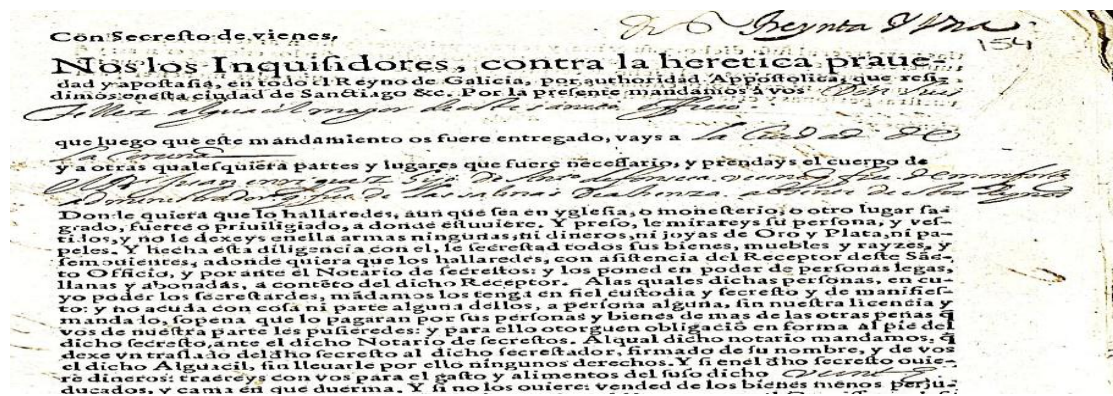 Treynta Y Una
154
Con Secresto de vienes,
Nos los Inquisidores, contra la heretica praue-
dad y apostasia, en todo el Reyno de Galicia, por authoridad Appostolica, que resi-
dimos enesta ciudad de Sanctiago &c. Por la presente mandamos à vos Don Luis
Tellez alguacil mayor de este sancto officio
que luego que este mandamiento os fuere entregado, vays a la Ciudad de
la Coruña
y a otras qualesquiera partes y lugares que fuere necessario, y prendays el cuerpo de
Juan enrriquez
administrador de las
Donde quiera que lo hallaredes, aun que sea en yglesia, o monesterio, o otro lugar sa-
grado, fuerte o priuiligiado, a donde estuuiere. Y preso, le mirareys su persona, y ves-
tidos, y no le dexeys enella armas ningunas, ni dineros, ni joyas de Oro y Plata, ni pa-
peles. Y hecha esta diligencia con el, le secrestad todos sus bienes, muebles y rayzes, y
semouientes, adonde quiera que los hallaredes, con asistencia del Receptor deste Sãc-
to Officio, y por ante el Notario de secrestos: y los poned en poder de personas legas,
llanas y abonadas, a contẽto del dicho Receptor. Alas quales dichas personas, en cu-
yo poder los secrestardes, mãdamos los tenga en fiel custodia y secresto y de manifies-
to: y no acuda con cosa ni parte alguna dellos, a persona alguna, sin nuestra licencia y
mandado, sopena que lo pagaran por sus personas y bienes de mas de las otras penas q̃
vos de nuestra parte les pusieredes: y para ello otorguen obligaciõ en forma al pie del
dicho secresto, ante el dicho Notario de secrestos. Alqual dicho notario mandamos, q̃
dexe vn traslado del dho secresto al dicho secrestador, firmado de su nombre, y de vos
el dicho Alguacil, sin lleuarle por ello ningunos derechos. Y si enel dho secresto ouie-
re dineros: traereys con vos para el gasto y alimentos del suso dicho veinte
ducados, y cama en que duerma. Y si no los ouiere: vended de los bienes menos perju-